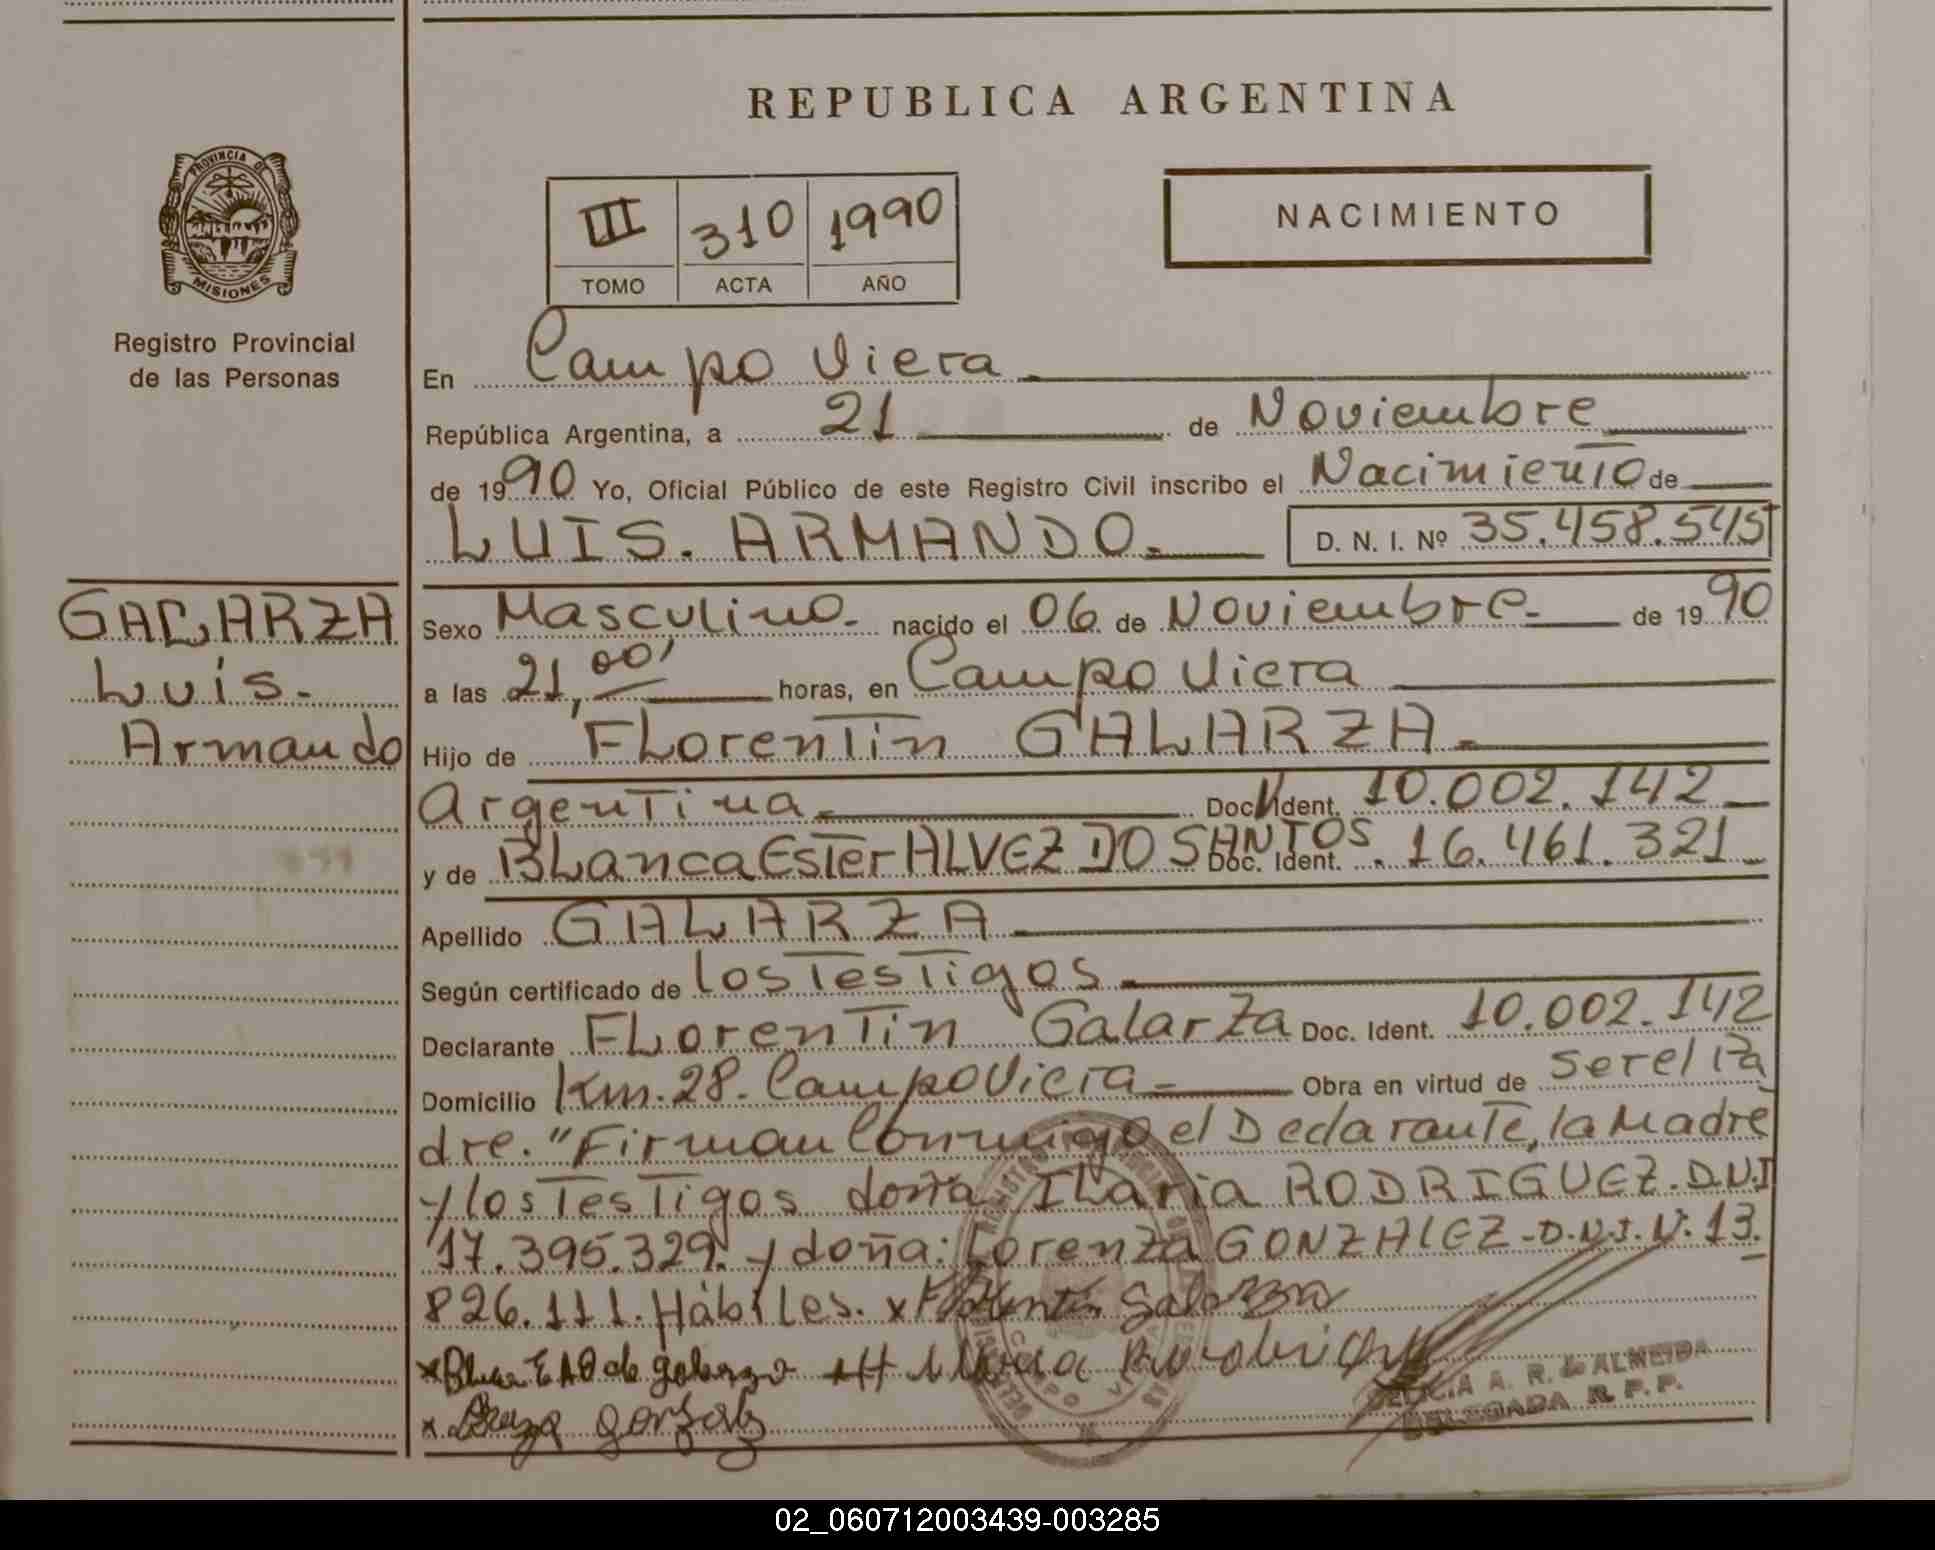 REPUBLICA ARGENTINA
PROVINCIA DE
MISIONES
Registro Provincial
de las Personas
III 310 1990
TOMO ACTA AÑO
NACIMIENTO
En Campo Viera
República Argentina, a 21 de Noviembre
de 1990 Yo, Oficial Público de este Registro Civil inscribo el Nacimiento de
LUIS. ARMANDO. D. N. I. Nº 35.458.545
GALARZA
Luis.
Armando
Sexo Masculino. nacido el 06 de Noviembre. de 1990
a las 21,00' horas, en Campo Viera
Hijo de FLorentin GALARZA.
Argentina. Doc. Ident. 10.002.142
y de BLanca Ester ALVEZ DO SANTOS Doc. Ident. 16.461.321
Apellido GALARZA
Según certificado de los Testigos
Declarante FLorentin Galarza Doc. Ident. 10.002.142
Domicilio Km. 28. Campo Viera Obra en virtud de ser el Pa
dre. "Firman Conmigo el Declarante, la Madre
y los Testigos doña ILaria RODRIGUEZ. D.N.I
17.395.329. y doña: Lorenza GONZALEZ-D.N.I.N: 13.
826.111. Hábiles. x Florentin Galarza
x Blanca E A D de galarza
x gonzalez
A. R. de ALMEIDA
DELEGADA R. P. P.
02_060712003439-003285